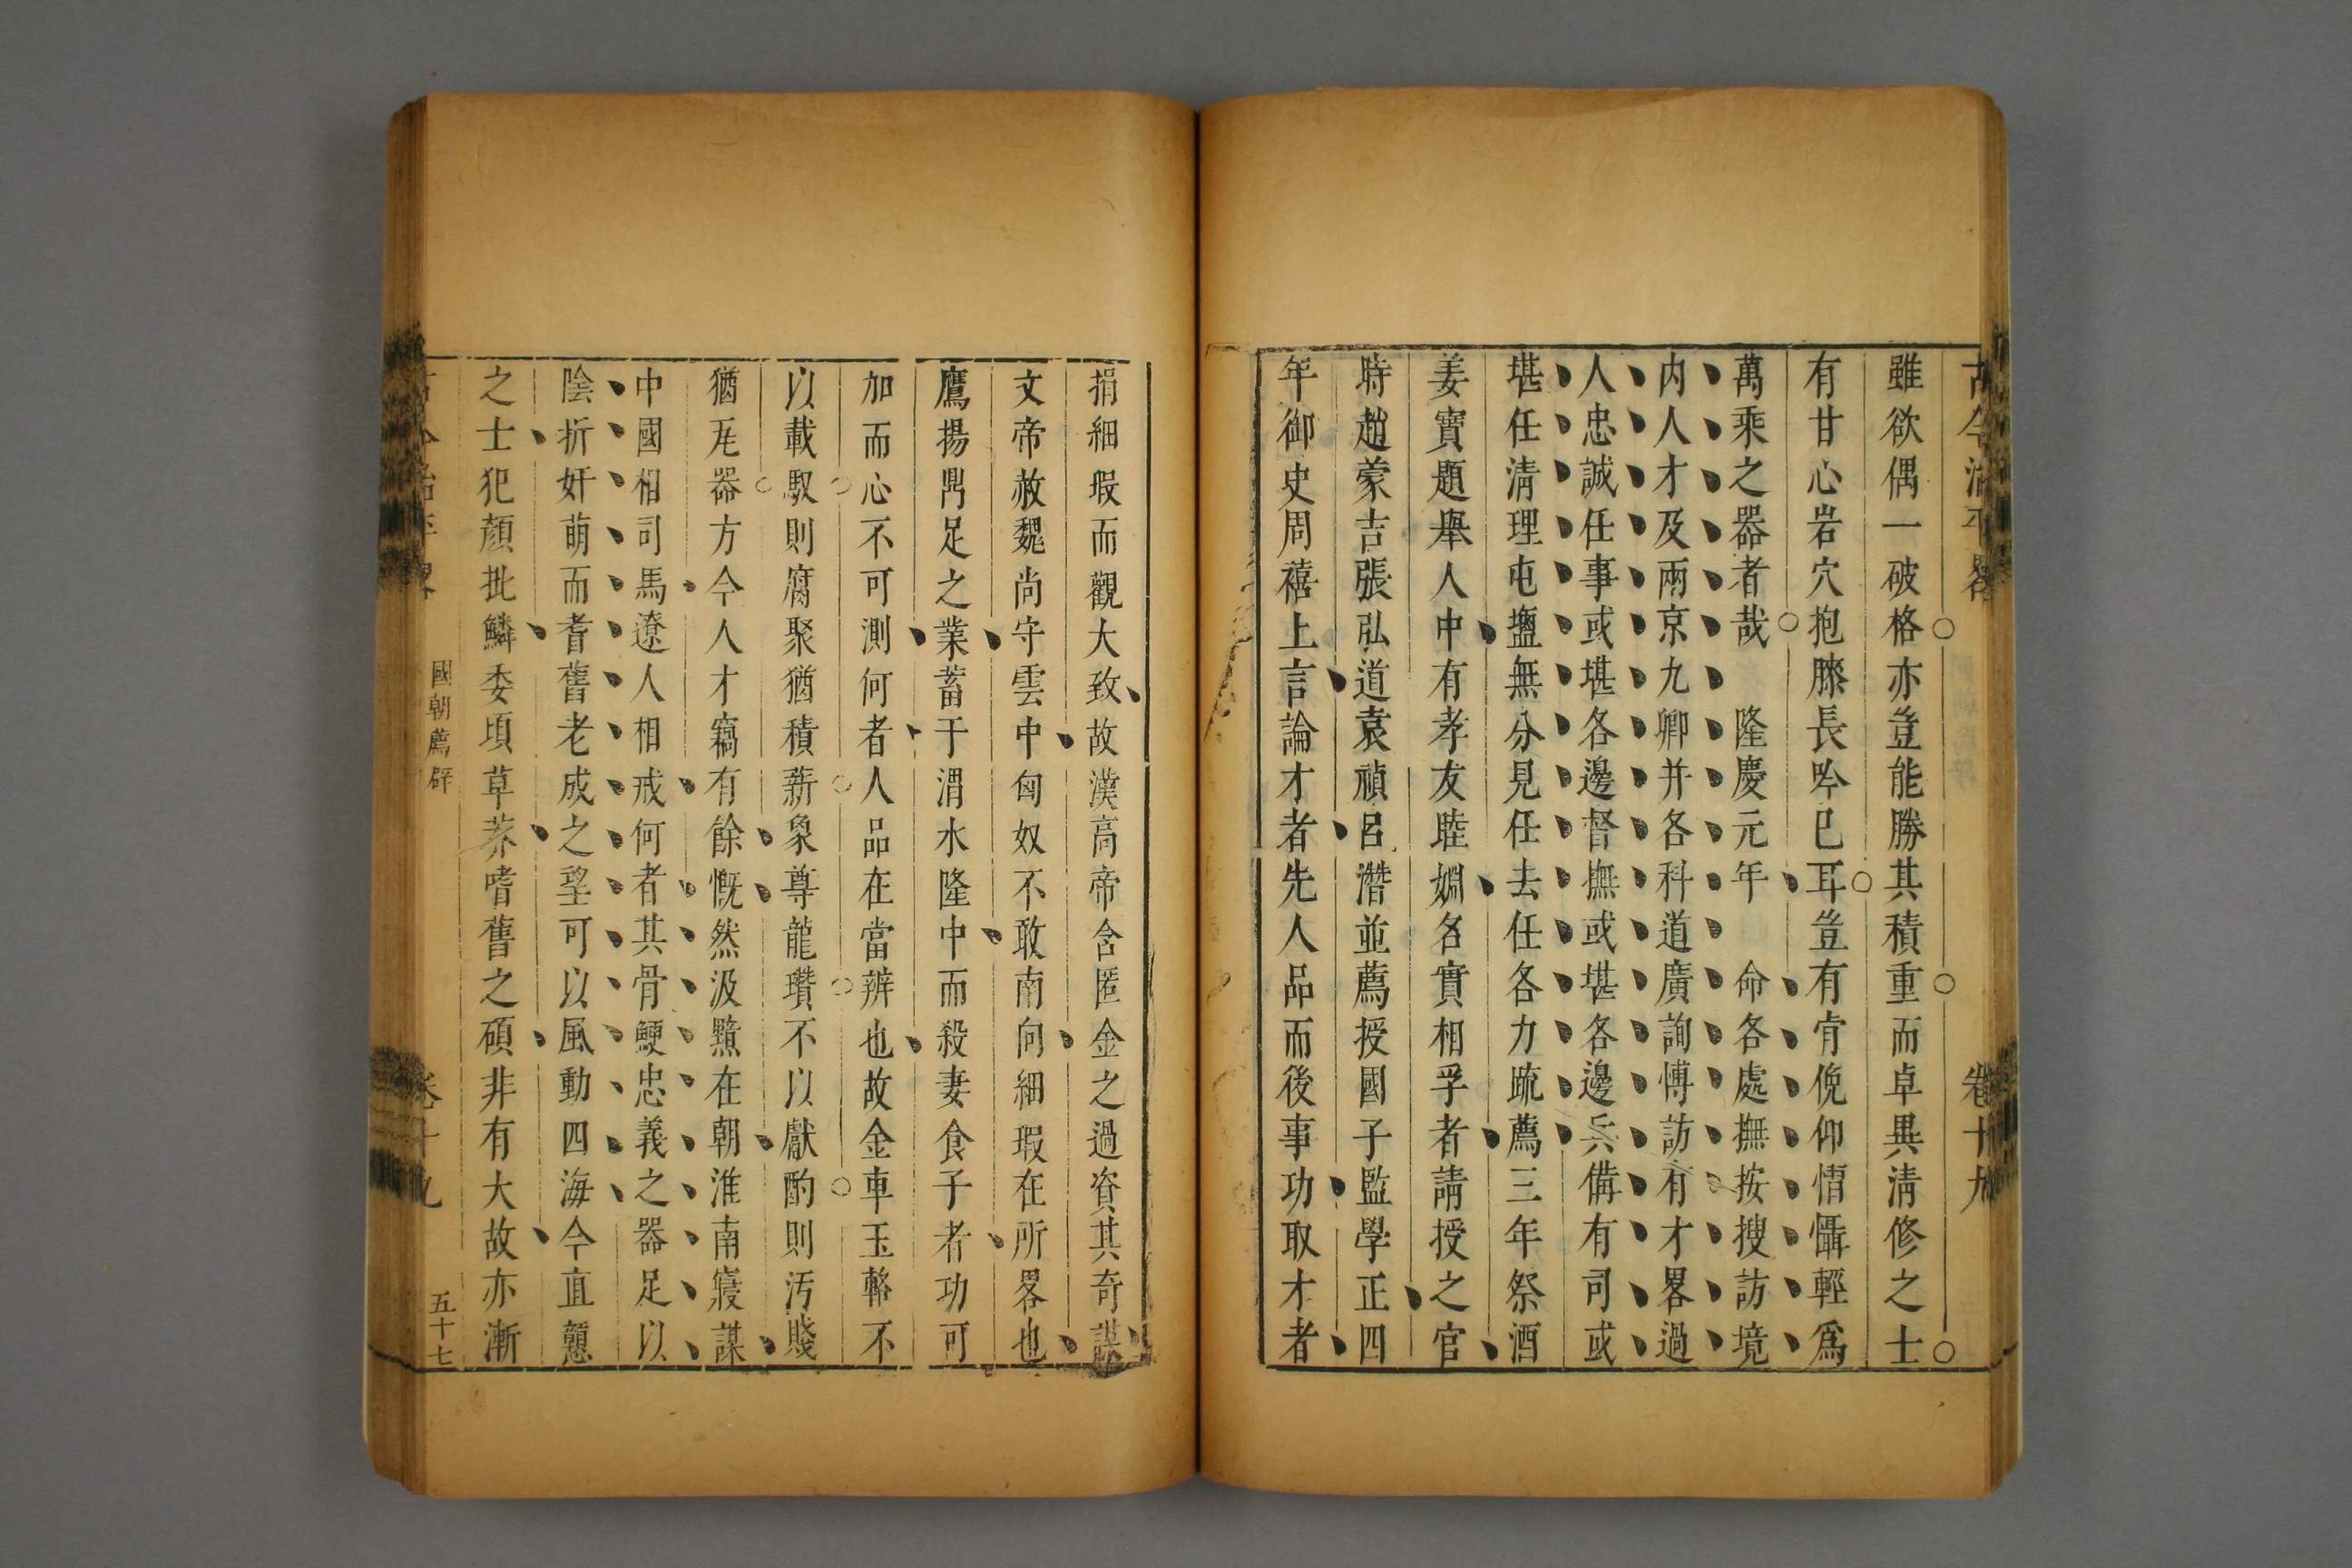 古今治平畧 卷十九
雖欲偶一破格亦豈能勝其積重而卓異清修之士
有甘心岩穴抱膝長吟已耳豈有肯俛仰惰懾輕爲
萬乘之器者哉 隆慶元年 命各處撫按搜訪境
内人才及兩京九卿并各科道廣詢博訪有才畧過
人忠誠任事或堪各邊督撫或堪各邊兵備有司或
堪任清理屯鹽無分見任去任各力疏薦三年祭酒
姜寶題舉人中有孝友睦婣名實相孚者請授之官
時趙蒙吉張弘道袁禎呂濳並薦授國子監學正四
年御史周禧上言論才者先人品而後事功取才者
捐細瑕而觀大致故漢高帝含匿金之過資其奇謀
文帝赦魏尚守雲中匈奴不敢南向細瑕在所畧也
鷹揚鼎足之業蓄于渭水隆中而殺妻食子者功可
加而心不可測何者人品在當辨也故金車玉輅不
以載馭則腐聚猶積薪象尊龍瓚不以獻酌則汚賤
猶瓦器方今人才竊有餘慨然汲黯在朝淮南寢謀
中國相司馬遼人相戒何者其骨鯁忠義之器足以
陰折奸萌而耆舊老成之望可以風動四海今直戇
之士犯顏批鱗委頃草莽嗜舊之碩非有大故亦漸
古今治平畧 國朝薦辟 卷十九 五十七